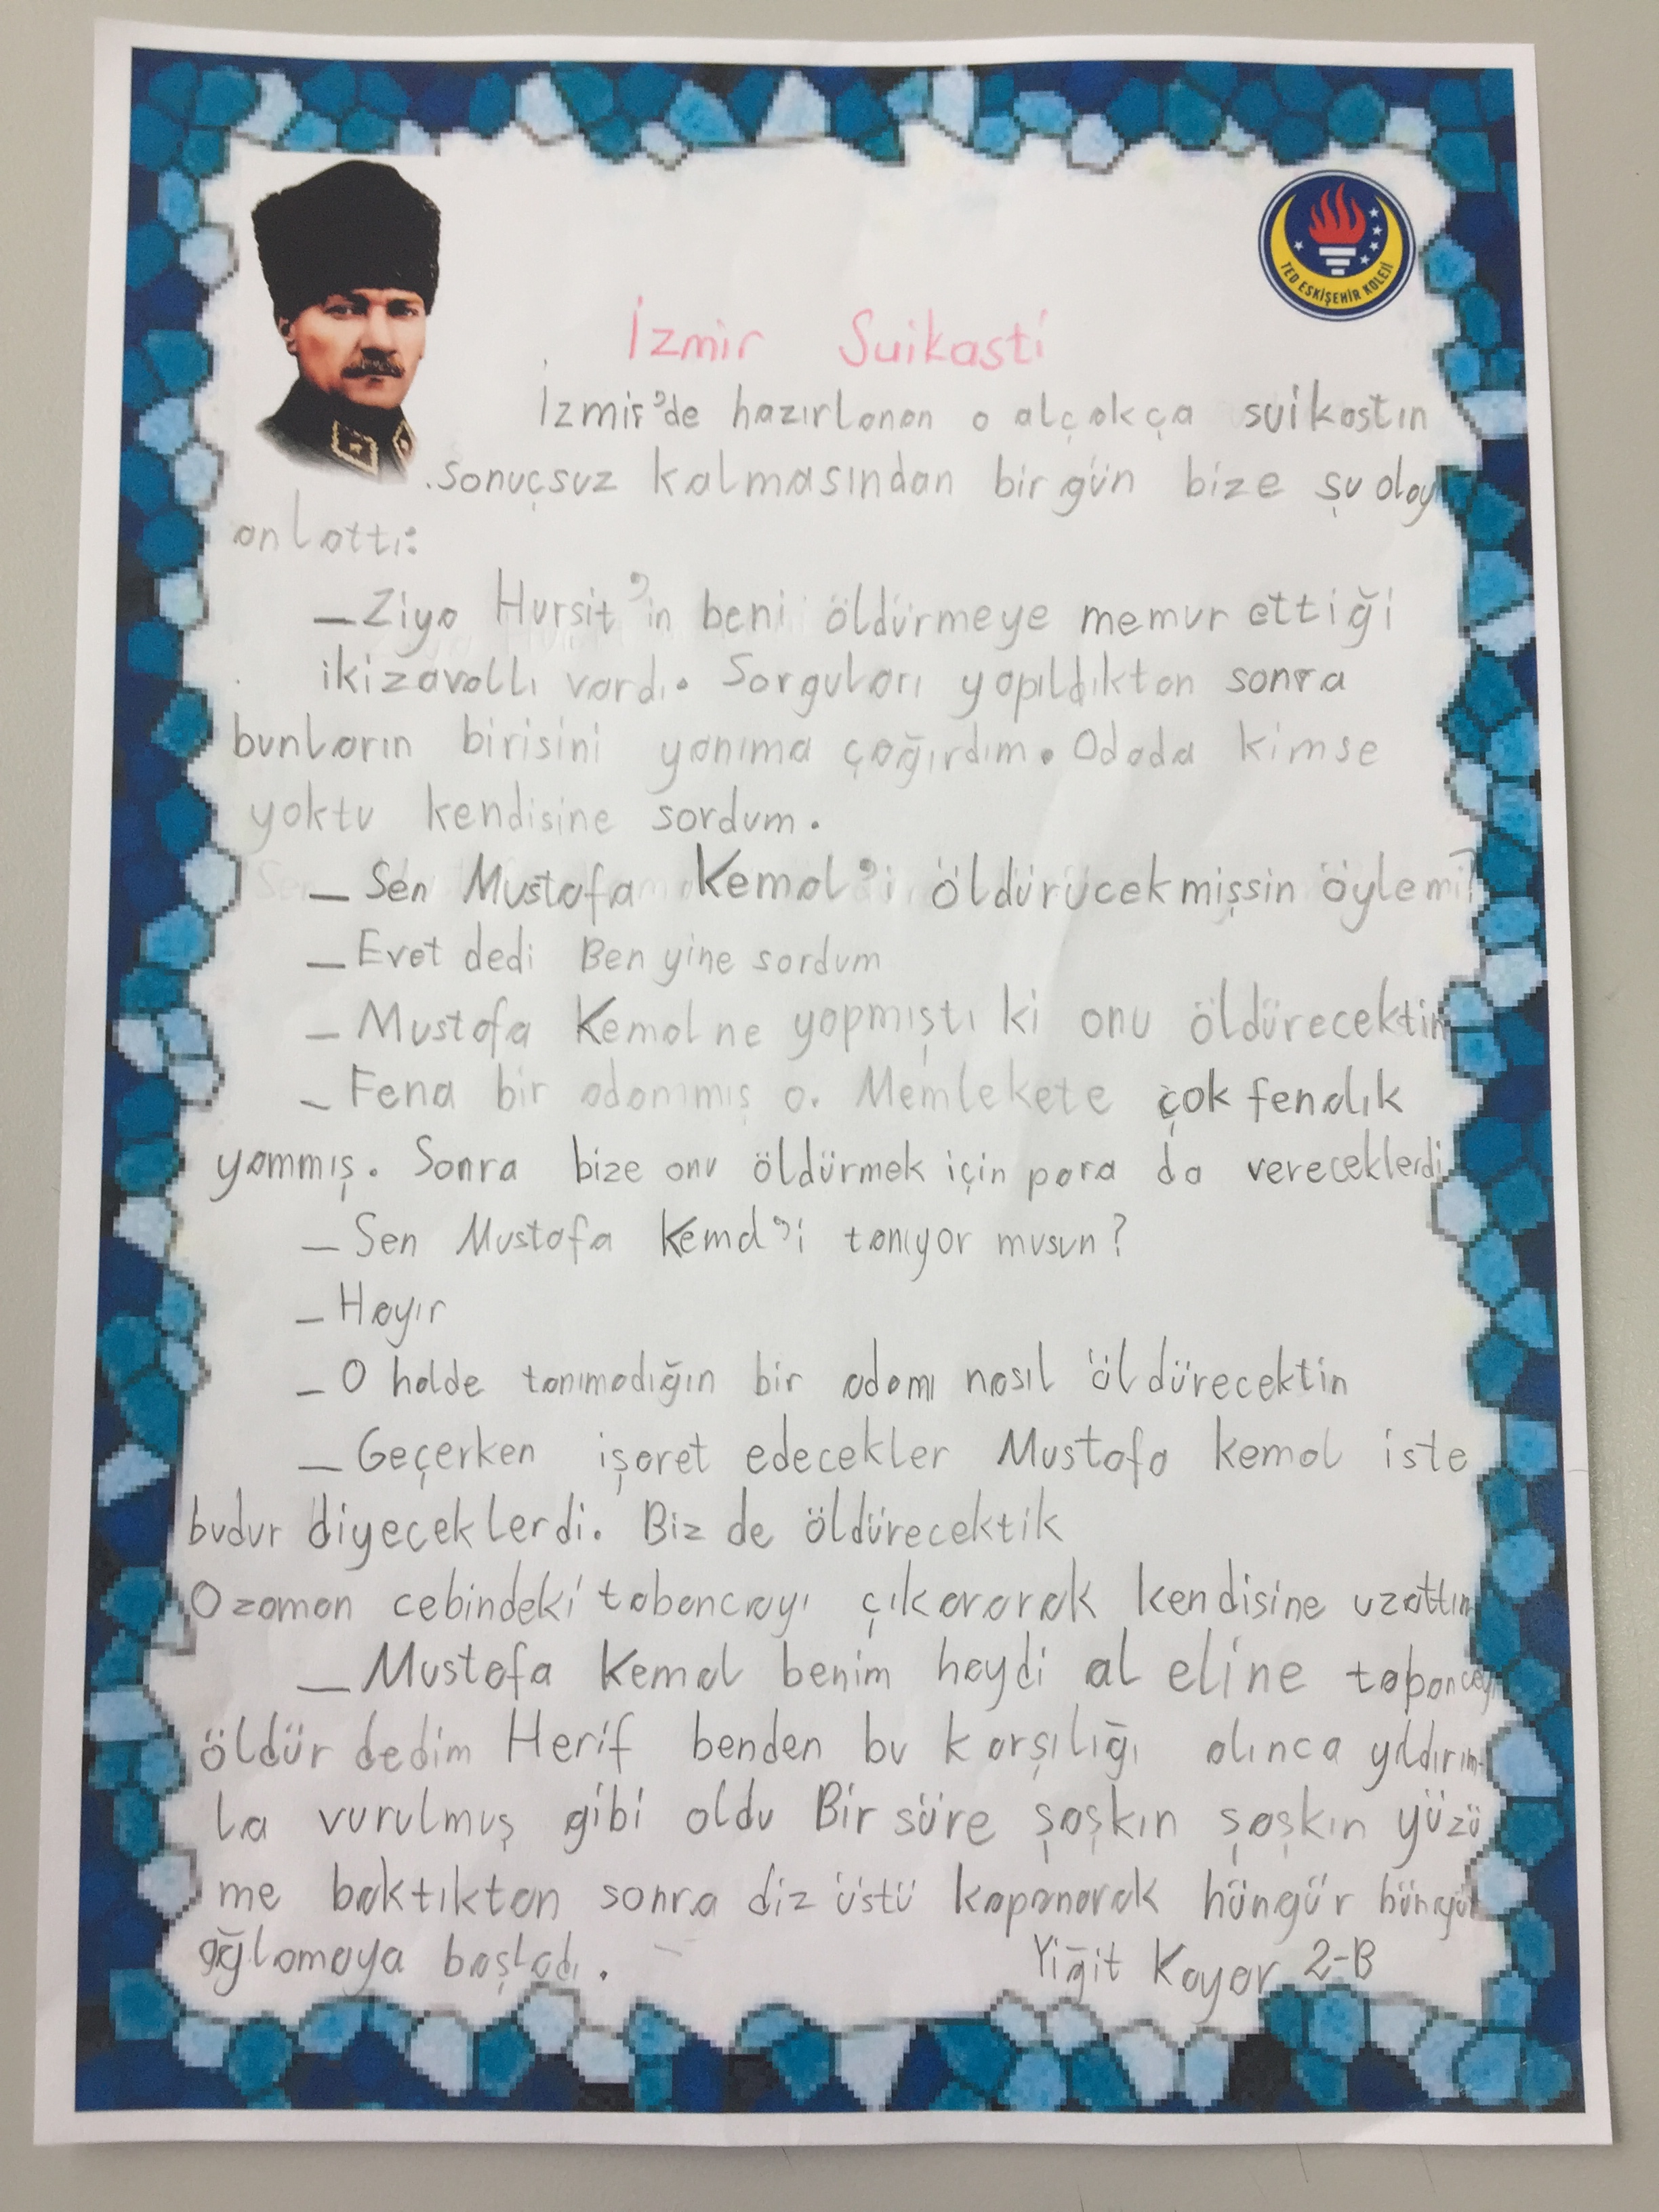 TED ESKİŞEHİR KOLEJİ
İzmir Suikasti
İzmir'de hazırlanan o alçakça suikastın
sonuçsuz kalmasından bir gün bize şu olay
anlattı:
— Ziya Hursit'in beni öldürmeye memur ettiği
iki zavallı vardı. Sorguları yapıldıktan sonra
bunların birisini yanıma çağırdım. Odada kimse
yoktu kendisine sordum.
— Sen Mustafa Kemal'i öldürücekmişsin öylemi?
— Evet dedi Ben yine sordum
— Mustafa Kemal ne yapmıştı ki onu öldürecektin
— Fena bir adammış o. Memlekete çok fenalık
yammış. Sonra bize onu öldürmek için para da vereceklerdi
— Sen Mustafa Kemal'i tanıyor musun?
— Hayır
— O halde tanımadığın bir adamı nasıl öldürecektin
— Geçerken işaret edecekler Mustafa kemal iste
budur diyeceklerdi. Biz de öldürecektik
O zaman cebindeki tabancayı çıkararak kendisine uzattım
— Mustafa Kemal benim haydi al eline tabancayı
öldür dedim Herif benden bu karşılığı alınca yıldırım-
la vurulmuş gibi oldu Bir süre şaşkın şaşkın yüzü
me baktıktan sonra diz üstü kapanarak hüngür hüngür
ağlamaya başladı.
Yiğit Kayar 2-B